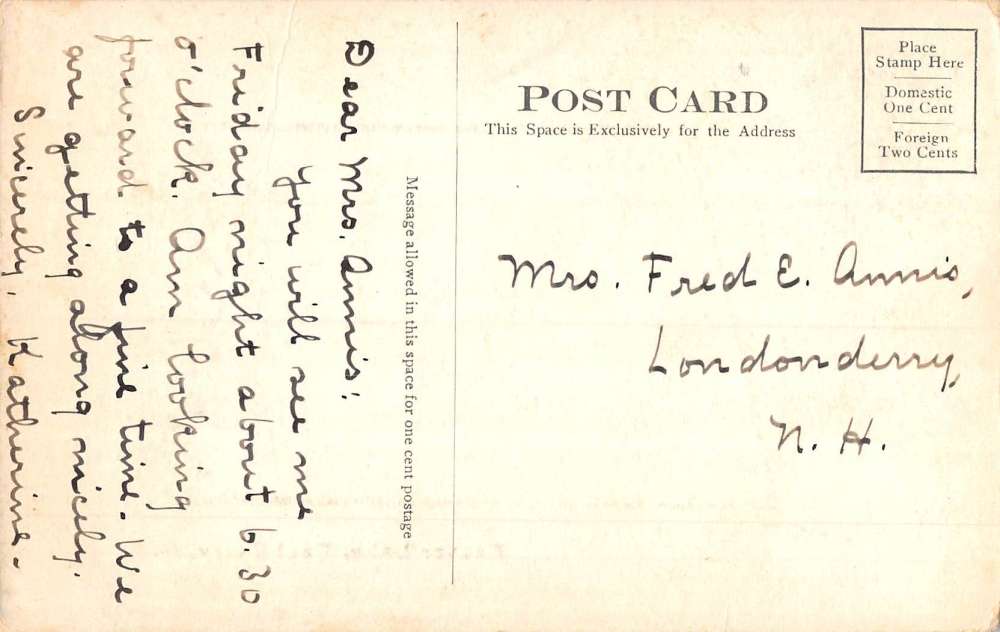 Dear Mrs. Annis:
You will see me
Friday night about 6.30
o'clock. Am looking
forward to a fine time. We
are getting along nicely.
Sincerely, Katherine.
Message allowed in this space for one cent postage
POST CARD
This Space is Exclusively for the Address
Place
Stamp Here
Domestic
One Cent
Foreign
Two Cents
Mrs. Fred E. Annis,
Londonderry,
N. H.